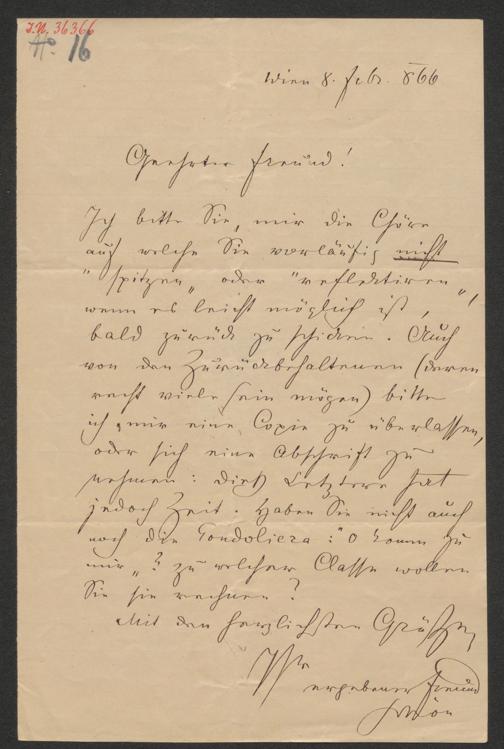 I.N. 36366
No. 16
Wien 8. Febr. 866
Geehrter Freund!
Ich bitte Sie, mir die Chöre
auf welche Sie vorläufig nicht
"spitzen" oder "reflektiren",
wenn es leicht möglich ist,
bald zurück zu schicken. Auch
von den Zurückbehaltenen (deren
recht viele sein mögen) bitte
ich, mir eine Copie zu überlassen,
oder sich eine Abschrift zu
nehmen: dieß Letztere hat
jedoch Zeit. Haben Sie nicht auch
noch die Gondoliera: "O komm zu
mir"? zu welcher Classe wollen
Sie sie rechnen?
Mit den herzlichsten Grüßen,
Ihr
ergebener Freund
Schön